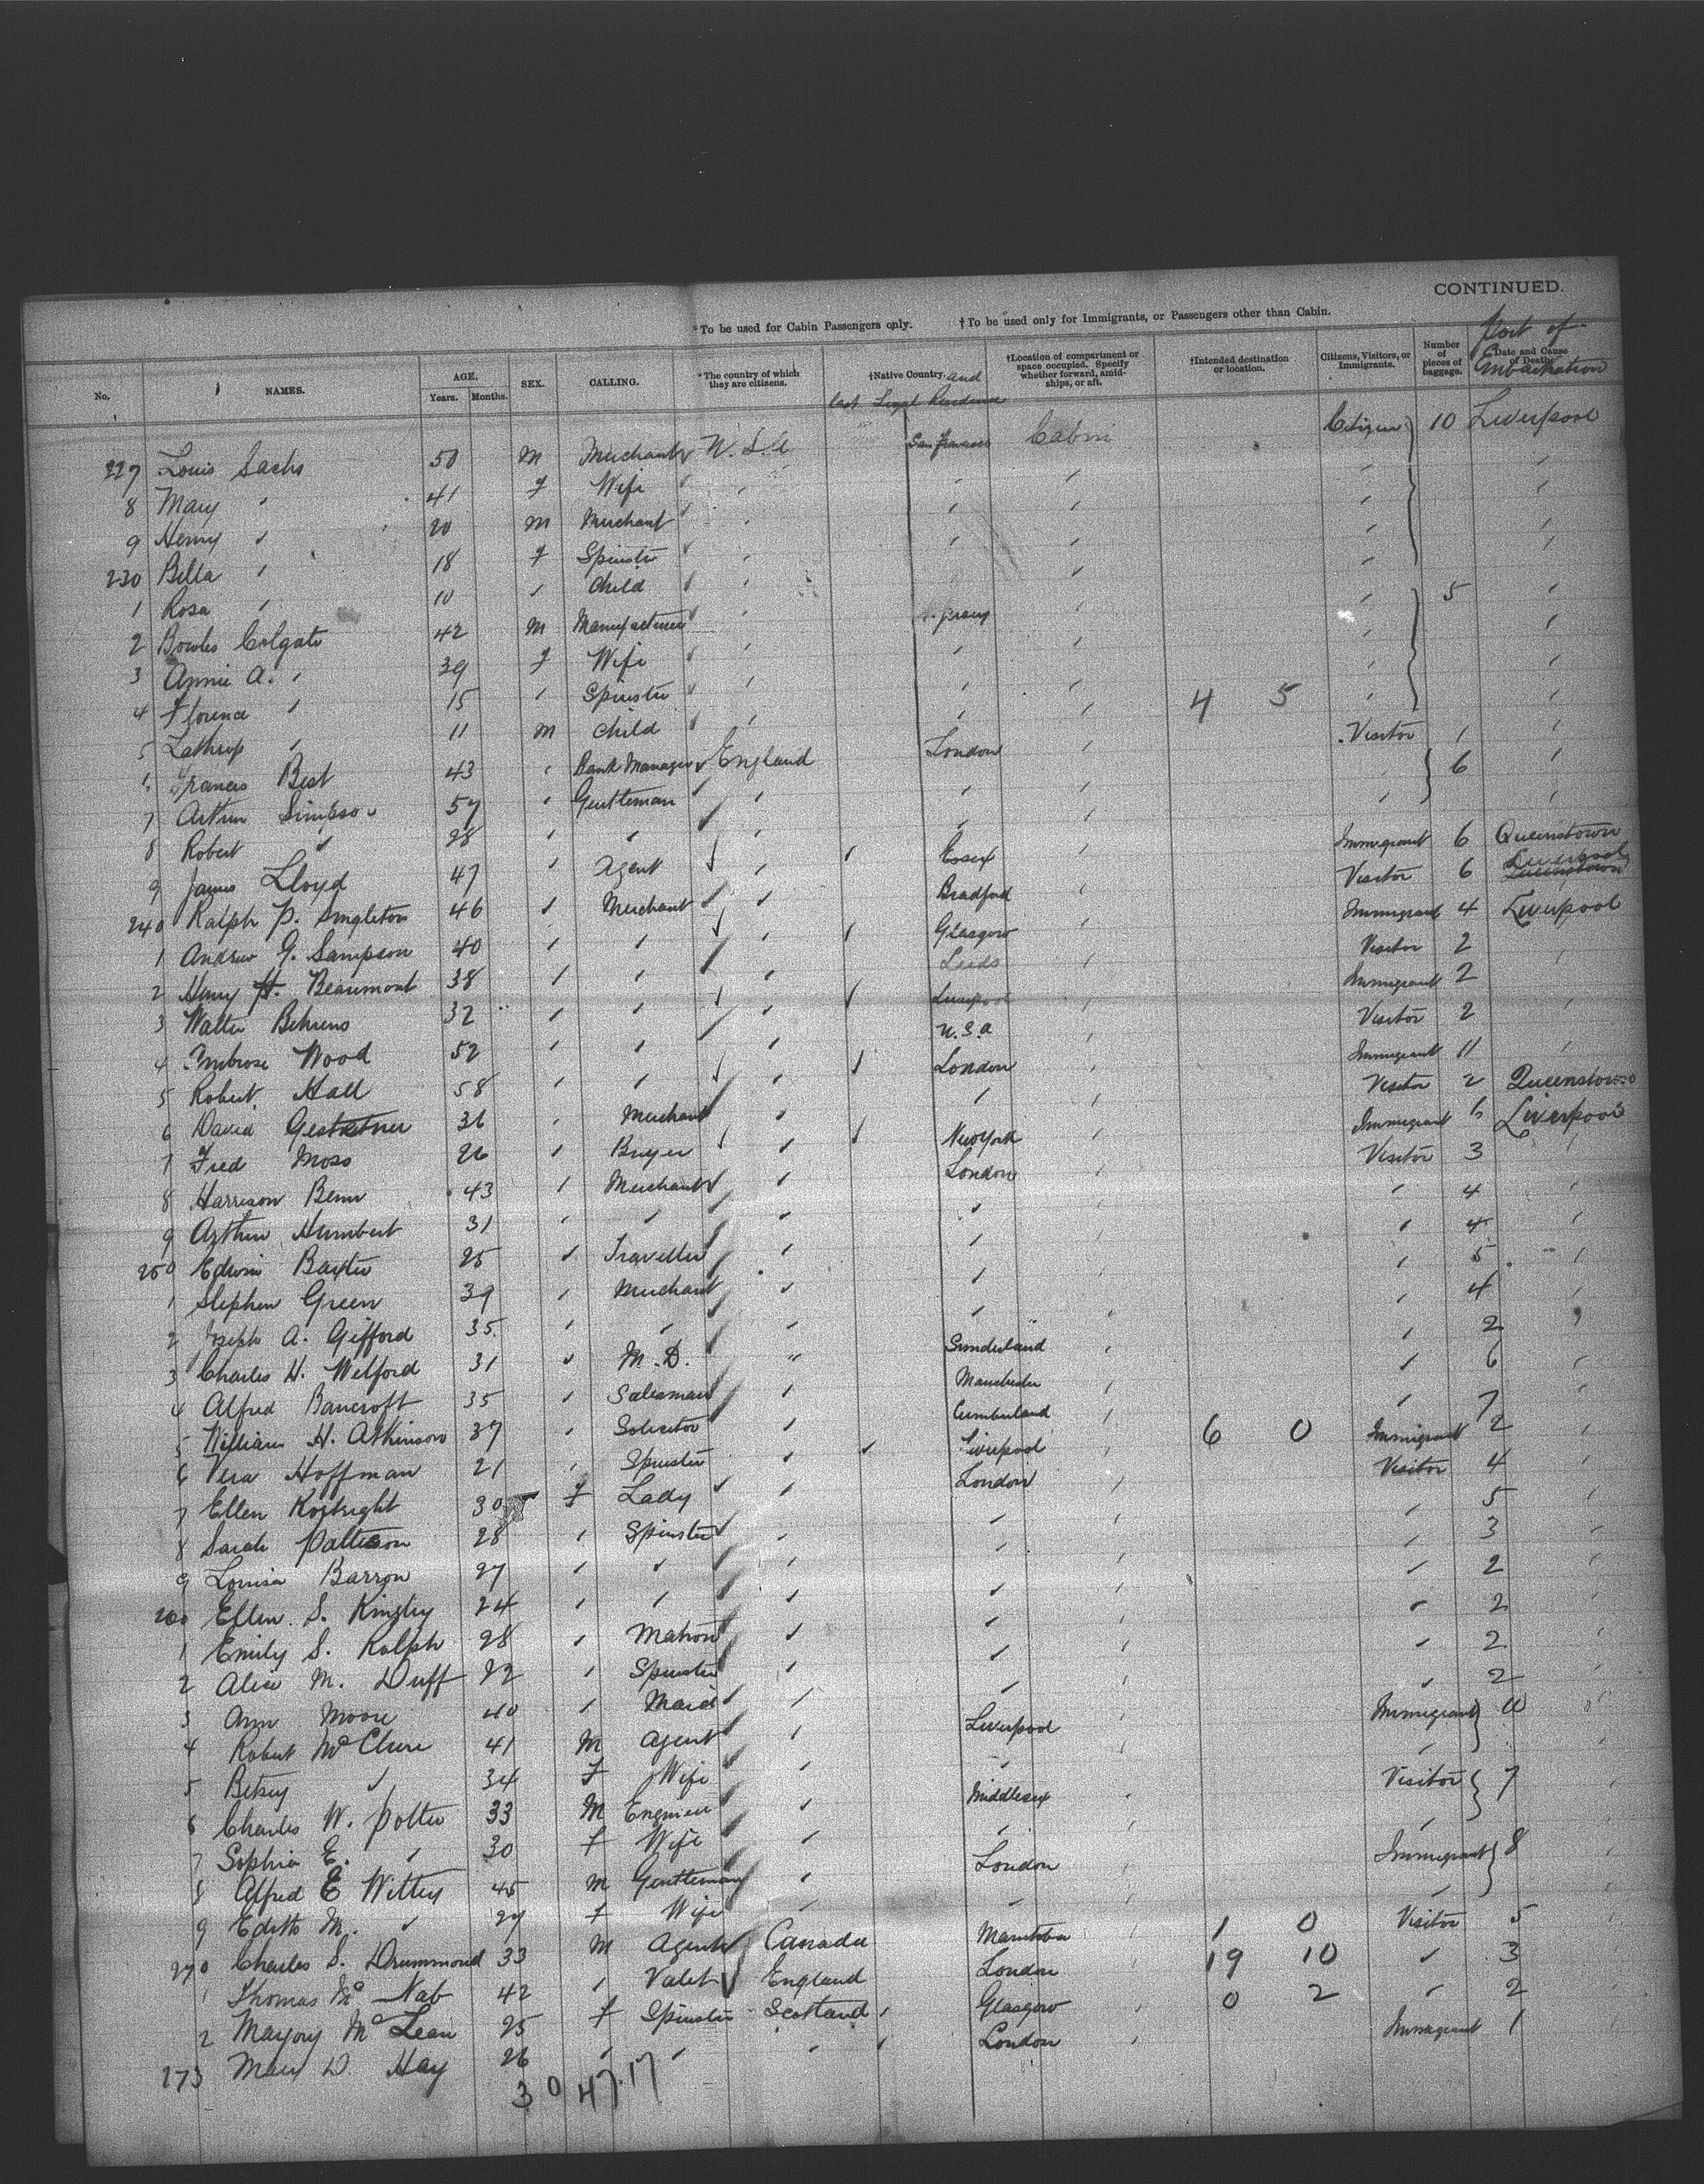 CONTINUED.
*To be used for Cabin Passengers only. †To be used only for Immigrants, or Passengers other than Cabin.
No. NAMES. AGE. Years. Months. SEX. CALLING. *The country of which they are citizens. †Native Country. and last Legal Residence †Location of compartment or space occupied. Specify whether forward, amidships, or aft. †Intended destination or location. Citizens, Visitors, or Immigrants. Number of pieces of baggage. Date and Cause of Death. Port of Embarkation
227 Louis Sachs 50 M Merchant U.S.A San Francisco Cabin Citizen 10 Liverpool
8 Mary " 41 f Wife
9 Henry " 20 M Merchant
230 Bella " 18 f Spinster
1 Rosa " 10 " Child
2 Bowles Colgate 42 M Manufacturer 5
3 Annie A. " 39 f Wife
4 Florence " 15 " Spinster 4 5
5 Lathrop " 11 M Child
6 Francis Best 43 " Bank Manager England London Visitor 1
7 Arthur Simpson 57 " Gentleman 6
8 Robert " 28 " "
9 James Lloyd 47 " Agent " Essex Immigrant 6 Queenstown
240 Ralph P. Singleton 46 " Merchant " Bradford Visitor 6 Liverpool
1 Andrew G. Sampson 40 " " " Glasgow Immigrant 4 Liverpool
2 Henry H. Beaumont 38 " " " Leeds Visitor 2
3 Walter Behrens 32 " " " Liverpool Immigrant 2
4 Ambrose Wood 52 " " " U.S.A Visitor 2
5 Robert Hall 58 " " " London Immigrant 11
6 David Gestetner 36 " Merchant " " Visitor 2 Queenstown
7 Fred Moss 26 " Buyer " New York Immigrant 6 Liverpool
8 Harrison Benn 43 " Merchant " London Visitor 3
9 Arthur Humbert 31 " " " " " 4
250 Edwin Baxter 25 " Traveller " " " 4
1 Stephen Green 39 " Merchant " " " 5
2 Joseph A. Gifford 35 " " " " " 4
3 Charles H. Welford 31 " M.D. " Sunderland " 2
4 Alfred Bancroft 35 " Salesman " Manchester " 6
5 William H. Atkinson 37 " Solicitor " Cumberland " 7
6 Vera Hoffman 21 " Spinster " Liverpool 6 0 Immigrant 2
7 Ellen Kortright 30 f Lady " London Visitor 4
8 Sarah Patterson 28 " Spinster " " " 5
9 Louisa Barron 27 " " " " " 3
260 Ellen S. Kingley 24 " " " " " 2
1 Emily S. Ralph 28 " Matron " " " 2
2 Alice M. Duff 22 " Spinster " " " 2
3 Ann Moore 40 " Maid " " " 2
4 Robert McClure 41 M Agent " Liverpool Immigrant 10
5 Betsey " 34 f Wife " " "
6 Charles W. Potter 33 M Engineer " Middlesex Visitor 7
7 Sophia E. " 30 f Wife " " "
8 Alfred E Witley 45 M Gentleman " London Immigrant 8
9 Edith M. " 27 f Wife " " "
270 Charles S. Drummond 33 M Agent Canada Manitoba 1 0 Visitor 5
1 Thomas McNab 42 " Valet England London 19 10 " 3
2 Marjory McLean 25 f Spinster Scotland Glasgow 0 2 " 2
273 Mary D. Hay 26 " " " London Immigrant 1
30 47.17